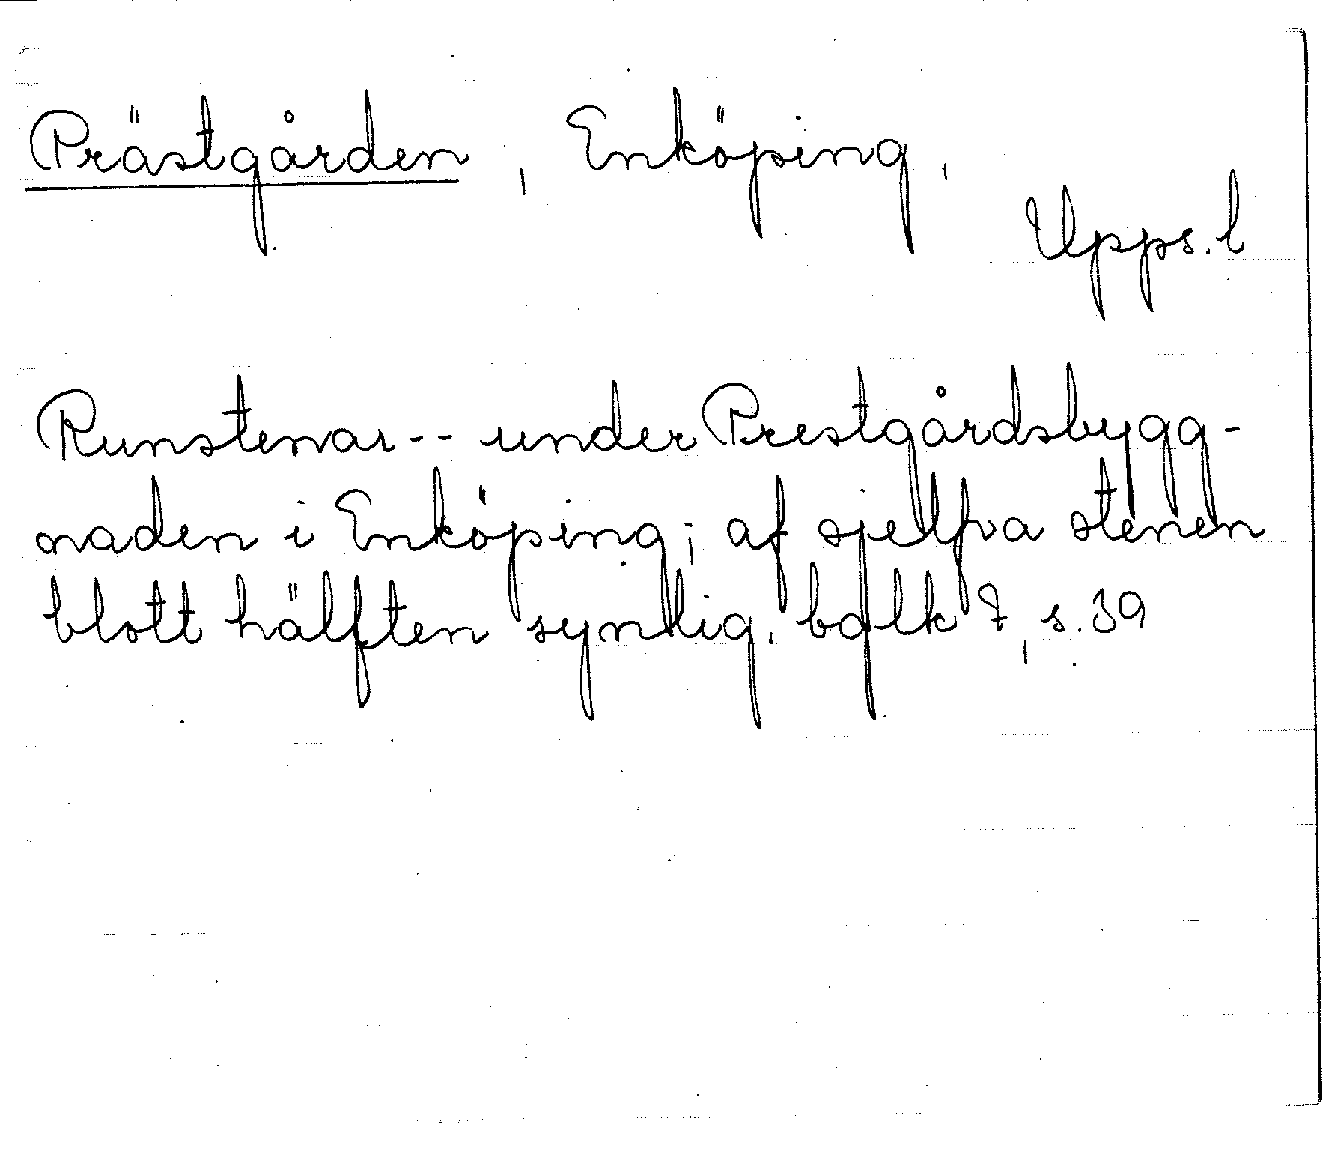 Prästgården, Enköping,
Upps. l
Runstenar -- under Prestgårdsbygg-
naden i Enköping; af sjelfva stenen
blott hälften synlig. balk 7, s. 39